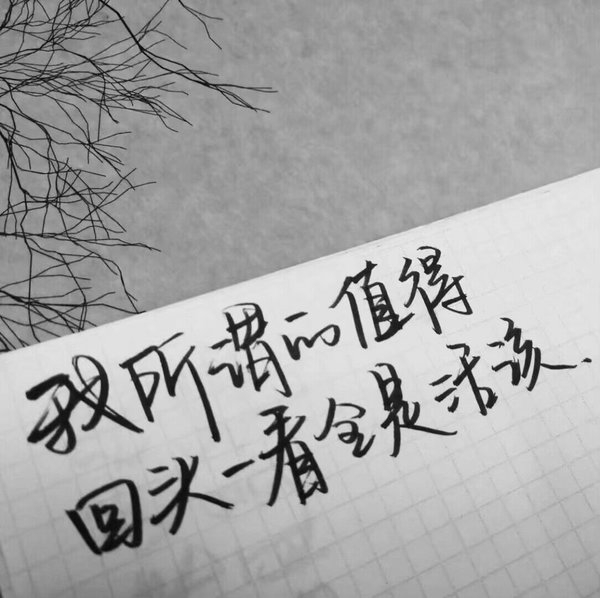 我所谓的值得
回头一看全是活该.